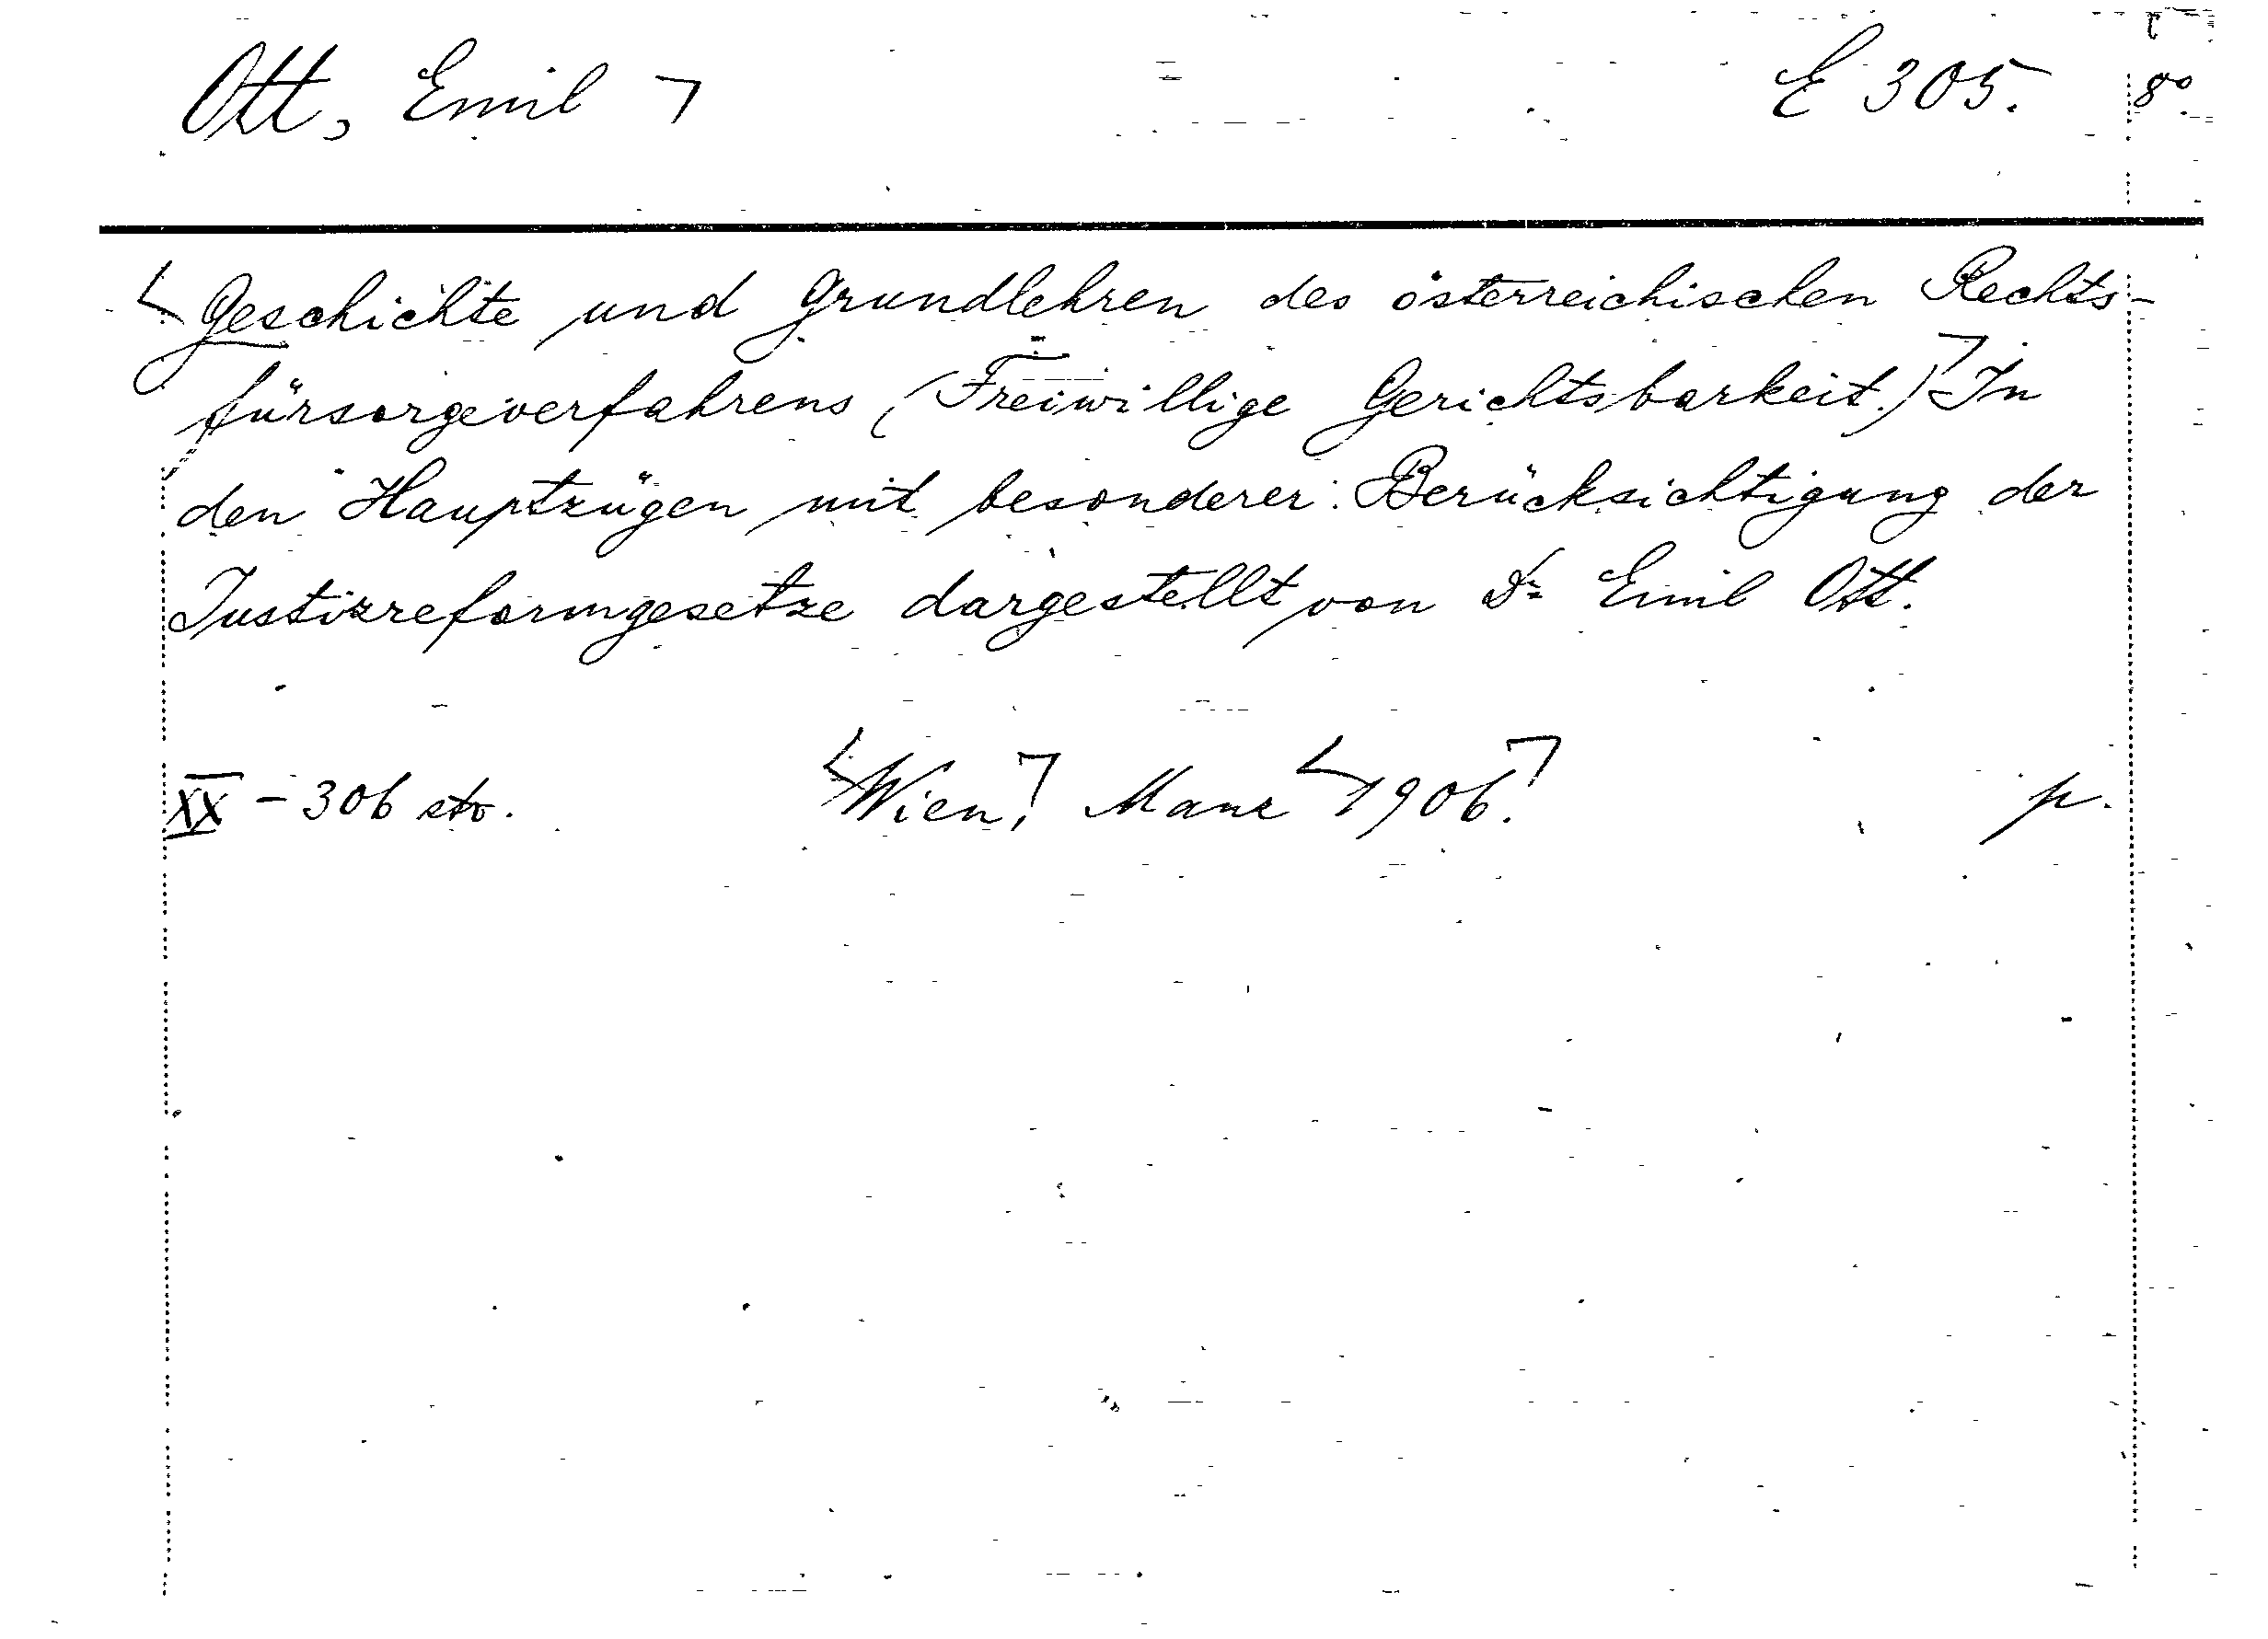 Ott, Emil ¬ E 305. 8°
Geschichte und Grundlehren des österreichischen Rechts-
fürsorgeverfahrens (Freiwillige Gerichtsbarkeit.) In
den Hauptzügen mit besonderer Berücksichtigung der
Justizreformgesetze dargestellt von Dr Emil Ott.
XX - 306 str. Wien, Manz 1906. p.